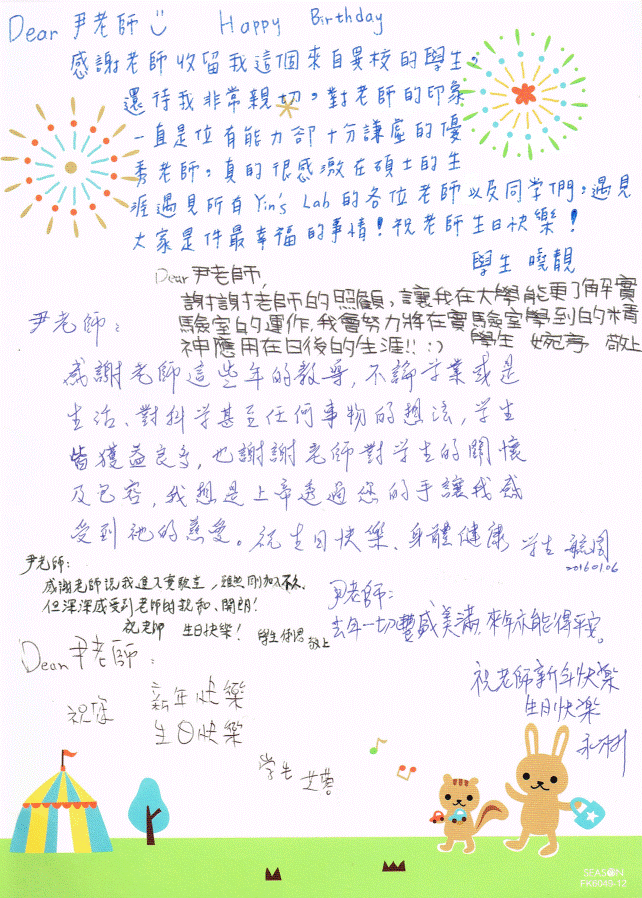 Dear 尹老師 Happy Birthday
感謝老師收留我這個來自異校的學生,
還待我非常親切。對老師的印象
一直是位有能力卻十分謙虛的優
秀老師。真的很感激在碩士的生
涯遇見所有Yin's Lab的各位老師以及同學們。遇見
大家是件最幸福的事情!祝老師生日快樂!
學生 曉靚
Dear 尹老師,
謝謝老師的照顧,讓我在大學能更了解實
驗室的運作,我會努力將在實驗室學到的精
神應用在日後的生涯!! :) 學生 婉亭 敬上
尹老師:
感謝老師這些年的教導,不論學業或是
生活、對科學甚至任何事物的想法,學生
皆獲益良多,也謝謝老師對學生的關懷
及包容,我想是上帝透過您的手讓我感
受到祂的慈愛。祝生日快樂、身體健康 學生
20160106
尹老師:
感謝老師讓我進入實驗室,雖然剛加入不久
但深深感受到老師的親和、開朗!
祝老師 生日快樂! 學生 敬上
尹老師:
去年一切豐盛美滿,來年亦能得平安。
祝老師新年快樂
生日快樂
Dear 尹老師:
祝您 新年快樂
生日快樂
學生 艾蓉
SEASON
FK6045-12